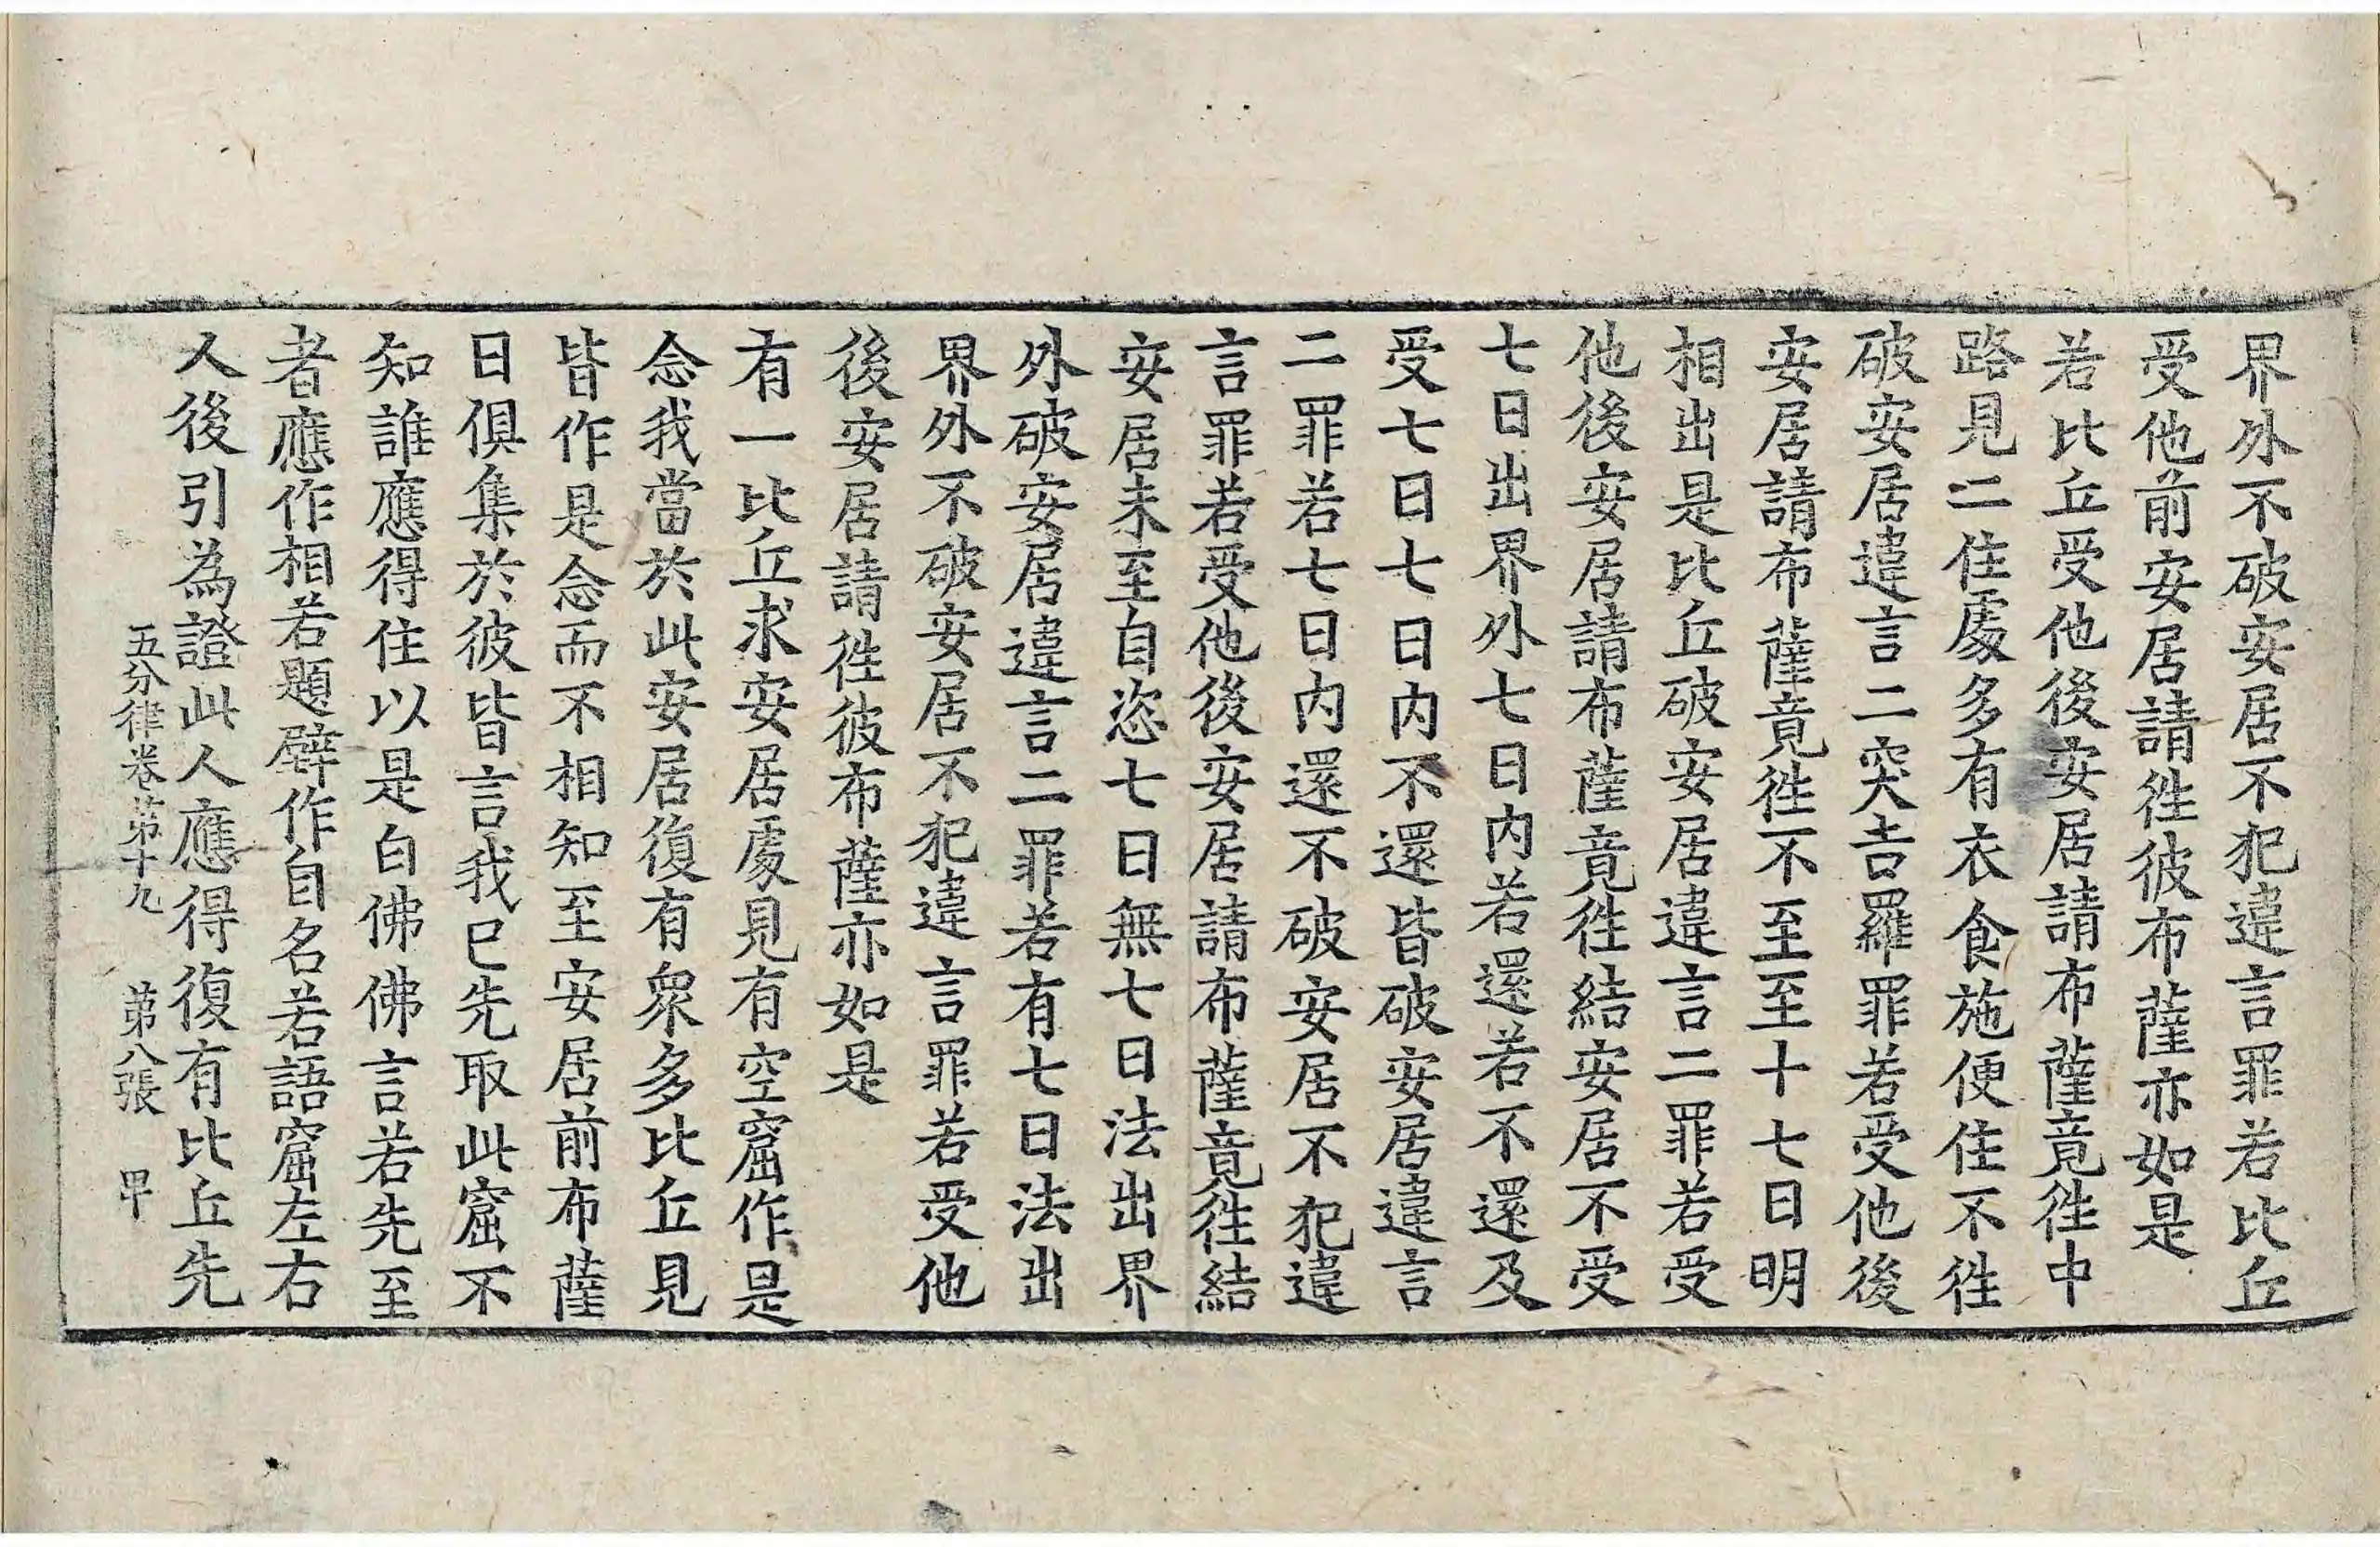 界外不破安居不犯違言罪若比丘
受他前安居請徃彼布薩亦如是
若比丘受他後安居請布薩竟徃中
路見二住處多有衣食施便住不徃
破安居違言二突吉羅罪若受他後
安居請布薩竟徃不至至十七日明
相出是比丘破安居違言二罪若受
他後安居請布薩竟徃結安居不受
七日出界外七日內若還若不還及
受七日七日內不還皆破安居違言
二罪若七日內還不破安居不犯違
言罪若受他後安居請布薩竟徃結
安居未至自恣七日無七日法出界
外破安居違言二罪若有七日法出
界外不破安居不犯違言罪若受他
後安居請徃彼布薩亦如是
有一比丘求安居處見有空窟作是
念我當於此安居復有衆多比丘見
皆作是念而不相知至安居前布薩
日俱集於彼皆言我已先取此窟不
知誰應得住以是白佛佛言若先至
者應作相若題壁作自名若語窟左右
人後引為證此人應得復有比丘先
五分律卷第十九　第八張　甲